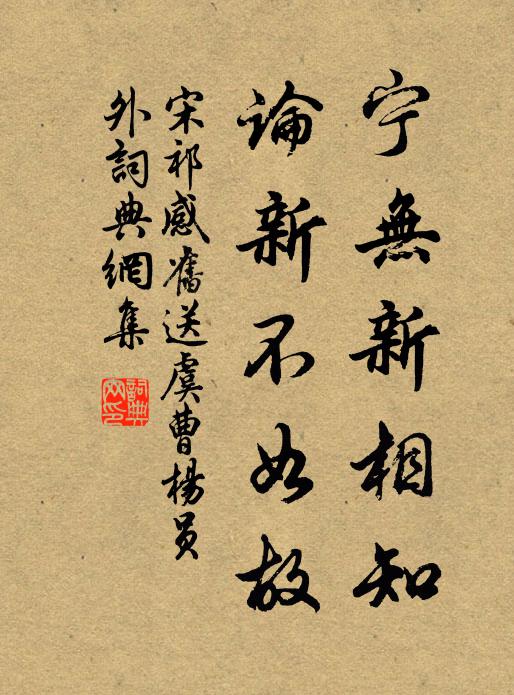 宁無新相知
論新不如故
宋祁感舊送虞曹楊员
外詞典網集
詞典网印